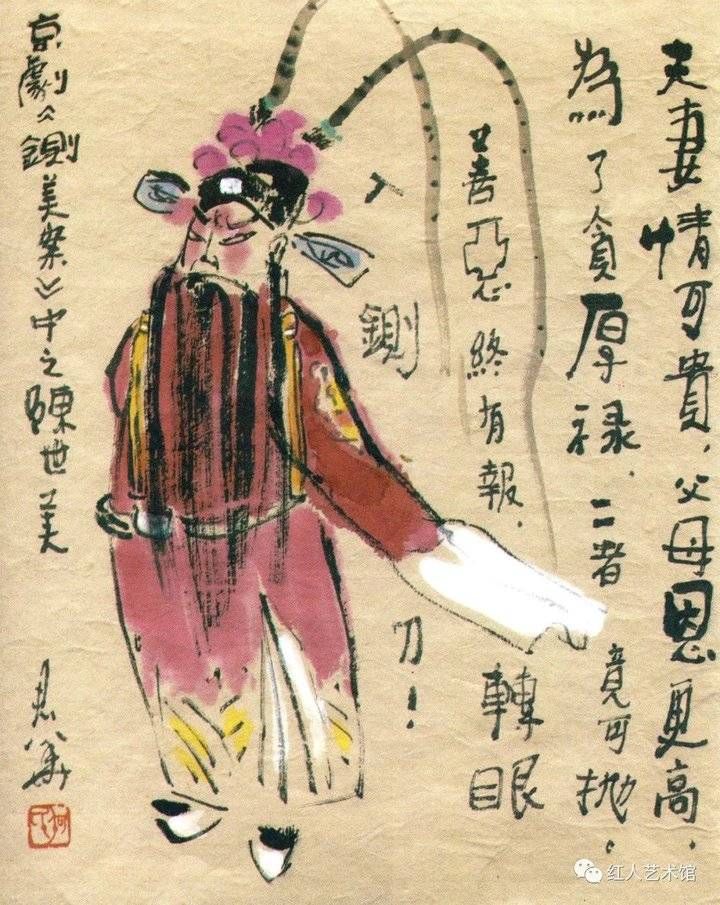 夫妻情可貴，父母恩更高。
為了貪厚禄，二者竟可抛。
善惡終有報，轉眼
入鍘刀！
京劇《鍘美案》中之陳世美
红人艺术馆